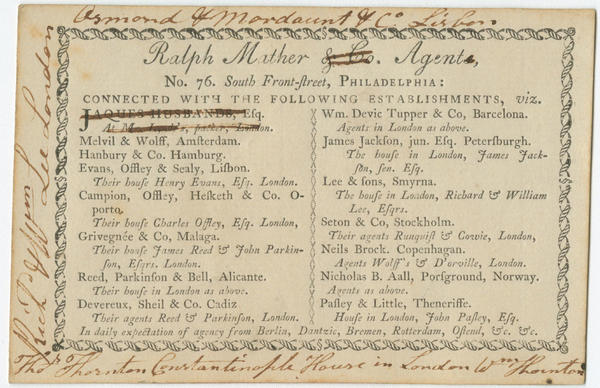 Ormond & Mordaunt & Co Lisbon
Ralph Mather & Co. Agents,
No. 76. South Front-ſtreet, PHILADELPHIA:
CONNECTED WITH THE FOLLOWING ESTABLISHMENTS, viz.
JAQUES HUSBANDS, Eſq.
At London.
Melvil & Wolff, Amſterdam.
Hanbury & Co. Hamburg.
Evans, Offley & Sealy, Liſbon.
Their houſe Henry Evans, Eſq. London.
Campion, Offley, Heſketh & Co. O-
porto.
Their houſe Charles Offley, Eſq. London.
Grivegnée & Co, Malaga.
Their houſe James Reed & John Parkin-
ſon, Eſqrs. London.
Reed, Parkinſon & Bell, Alicante.
Their houſe in London as above.
Devereux, Sheil & Co. Cadiz
Their agents Reed & Parkinſon, London.
Wm. Devic Tupper & Co, Barcelona.
Agents in London as above.
James Jackſon, jun. Eſq. Peterſburgh.
The houſe in London, James Jack-
ſon, ſen. Eſq.
Lee & ſons, Smyrna.
The houſe in London, Richard & William
Lee, Eſqrs.
Seton & Co, Stockholm.
Their agents Runquiſt & Cowie, London,
Neils Brock. Copenhagan.
Agents Wolff's & D'orville, London.
Nicholas B. Aall, Porſground, Norway.
Agents as above.
Paſley & Little, Theneriffe.
Houſe in London, John Paſley, Eſq.
In daily expectation of agency from Berlin, Dantzic, Bremen, Rotterdam, Oſtend, &c. &c.
Richd & Wm Lee London
Thos Thornton Constantinople House in London Wm Thornton